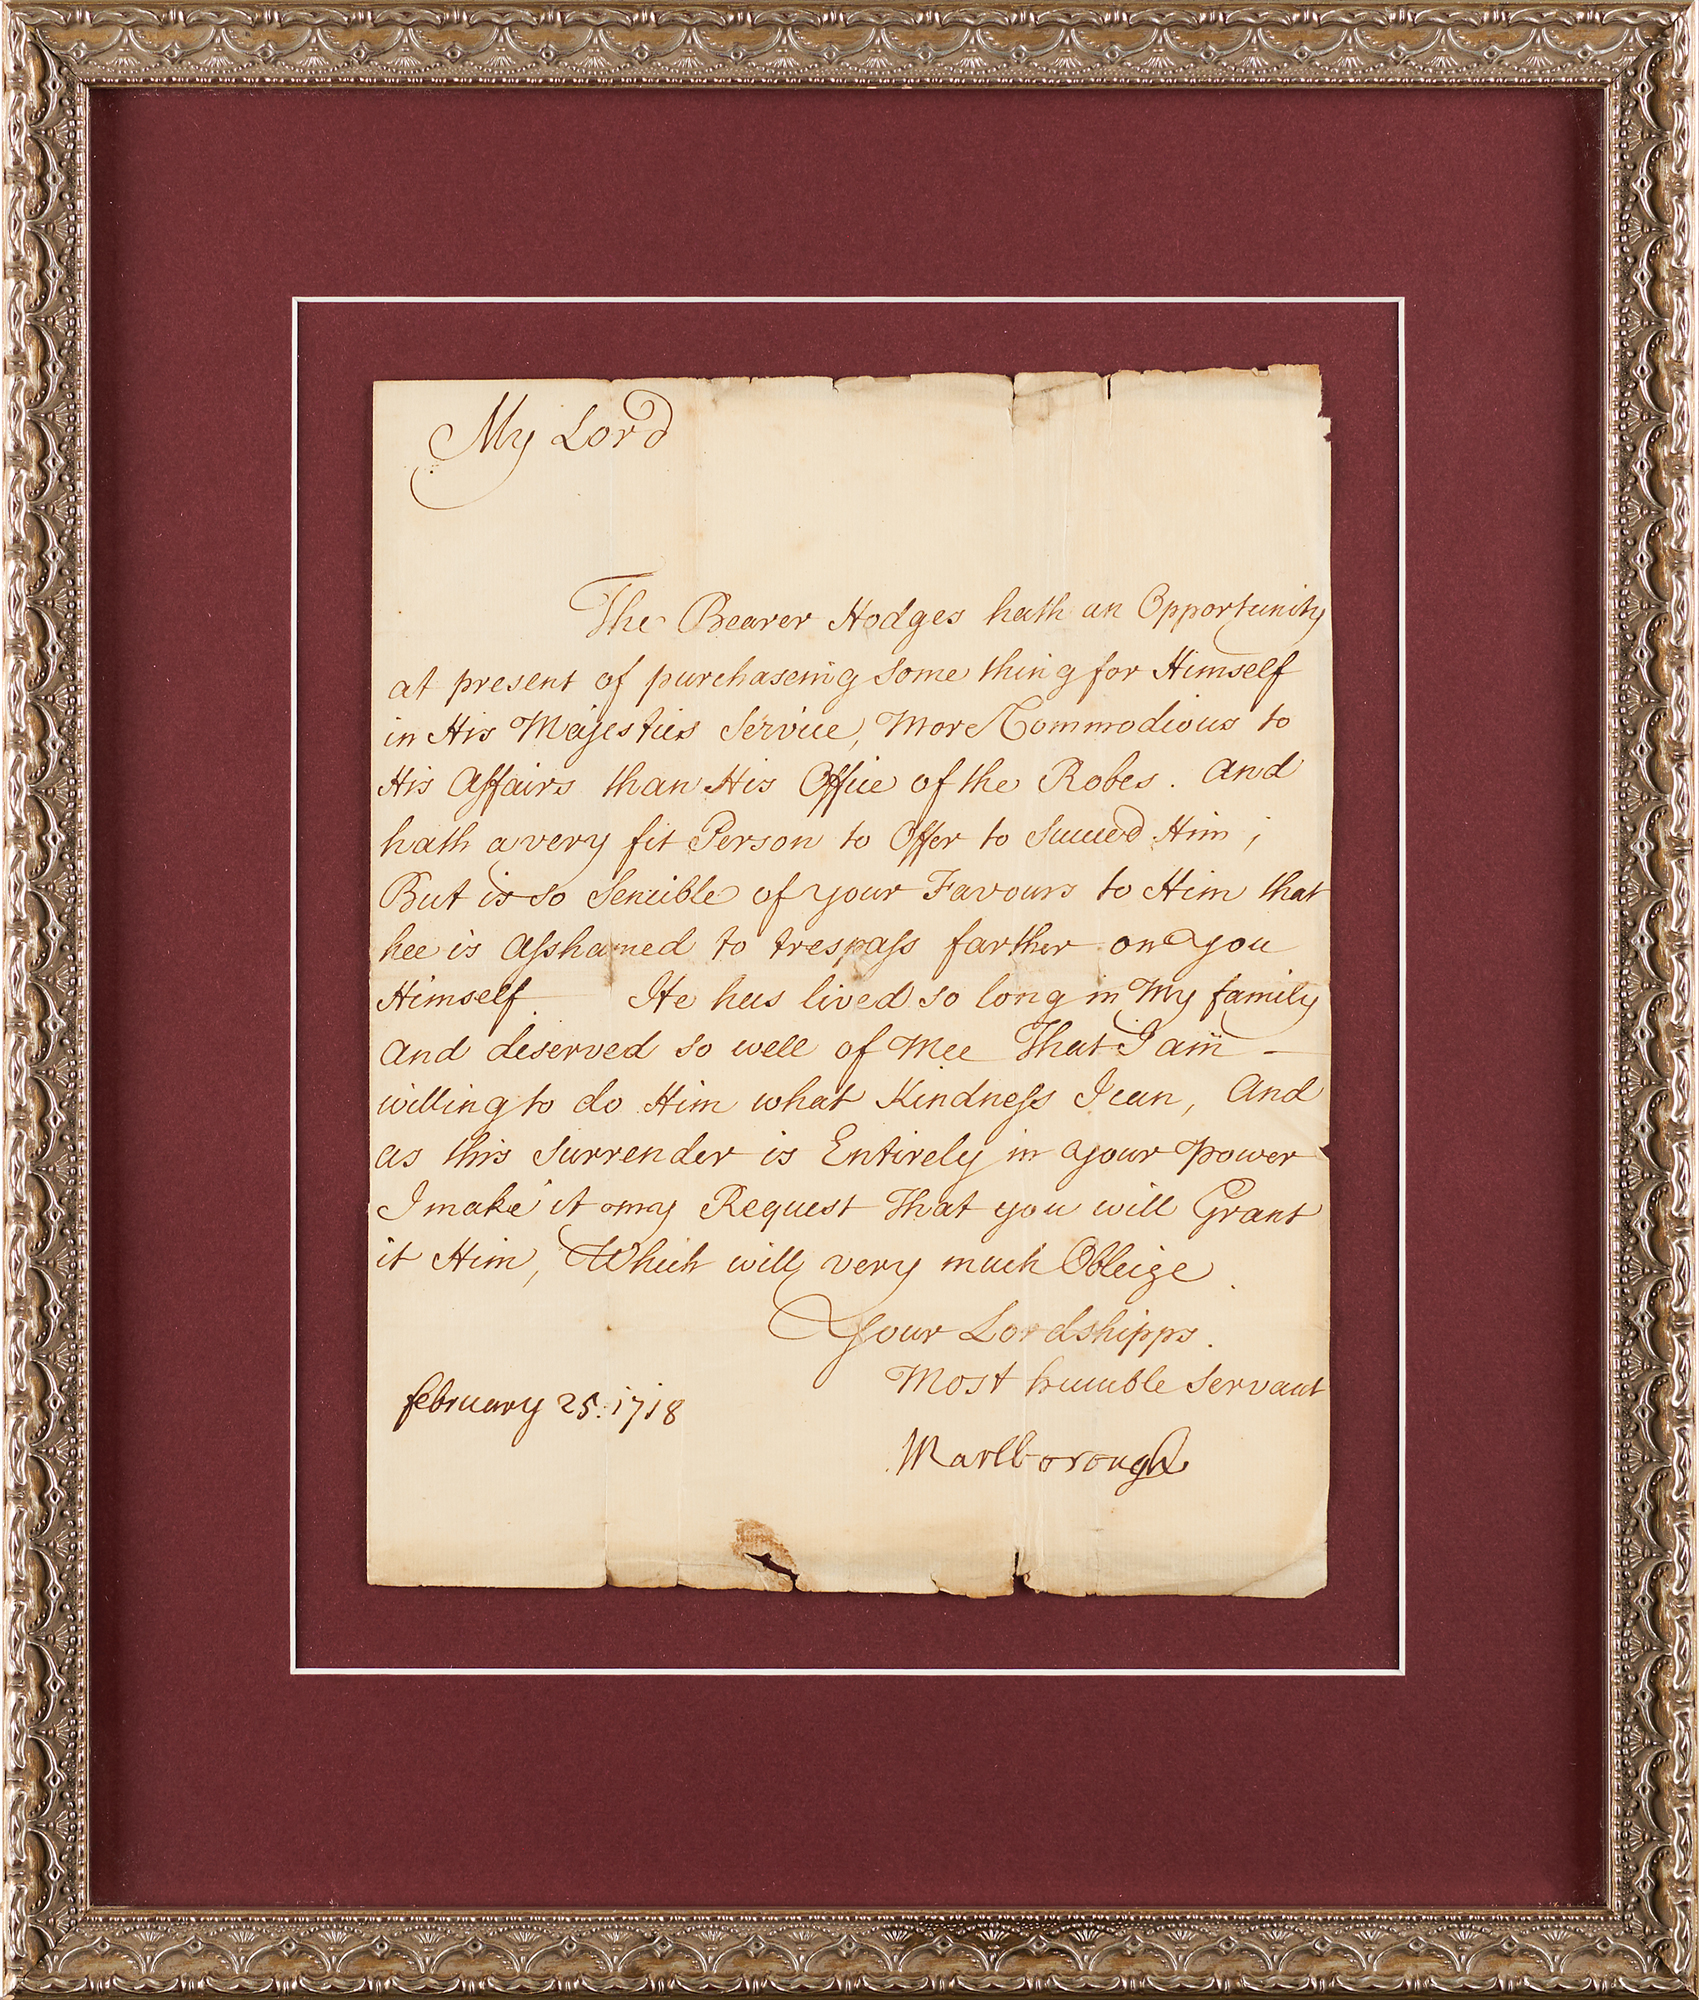 My Lord
The Bearer Hodges hath an Opportunity
at present of purchaseing some thing for Himself
in His Majesties Service, More Commodious to
His Affairs than His Office of the Robes. And
hath a very fit Person to Offer to Succed Him;
But is so Sencible of your Favours to Him that
hee is Asshamed to trespass farther on you
Himself. He has lived so long in My family
and deserved so well of Mee That I am
willing to do Him what Kindness I can, And
as this Surrender is Entirely in your power
I make it my Request That you will Grant
it Him, Which will very much Obleige
Your Lordshipps.
Most humble Servant
february 25: 1718
Marlborough